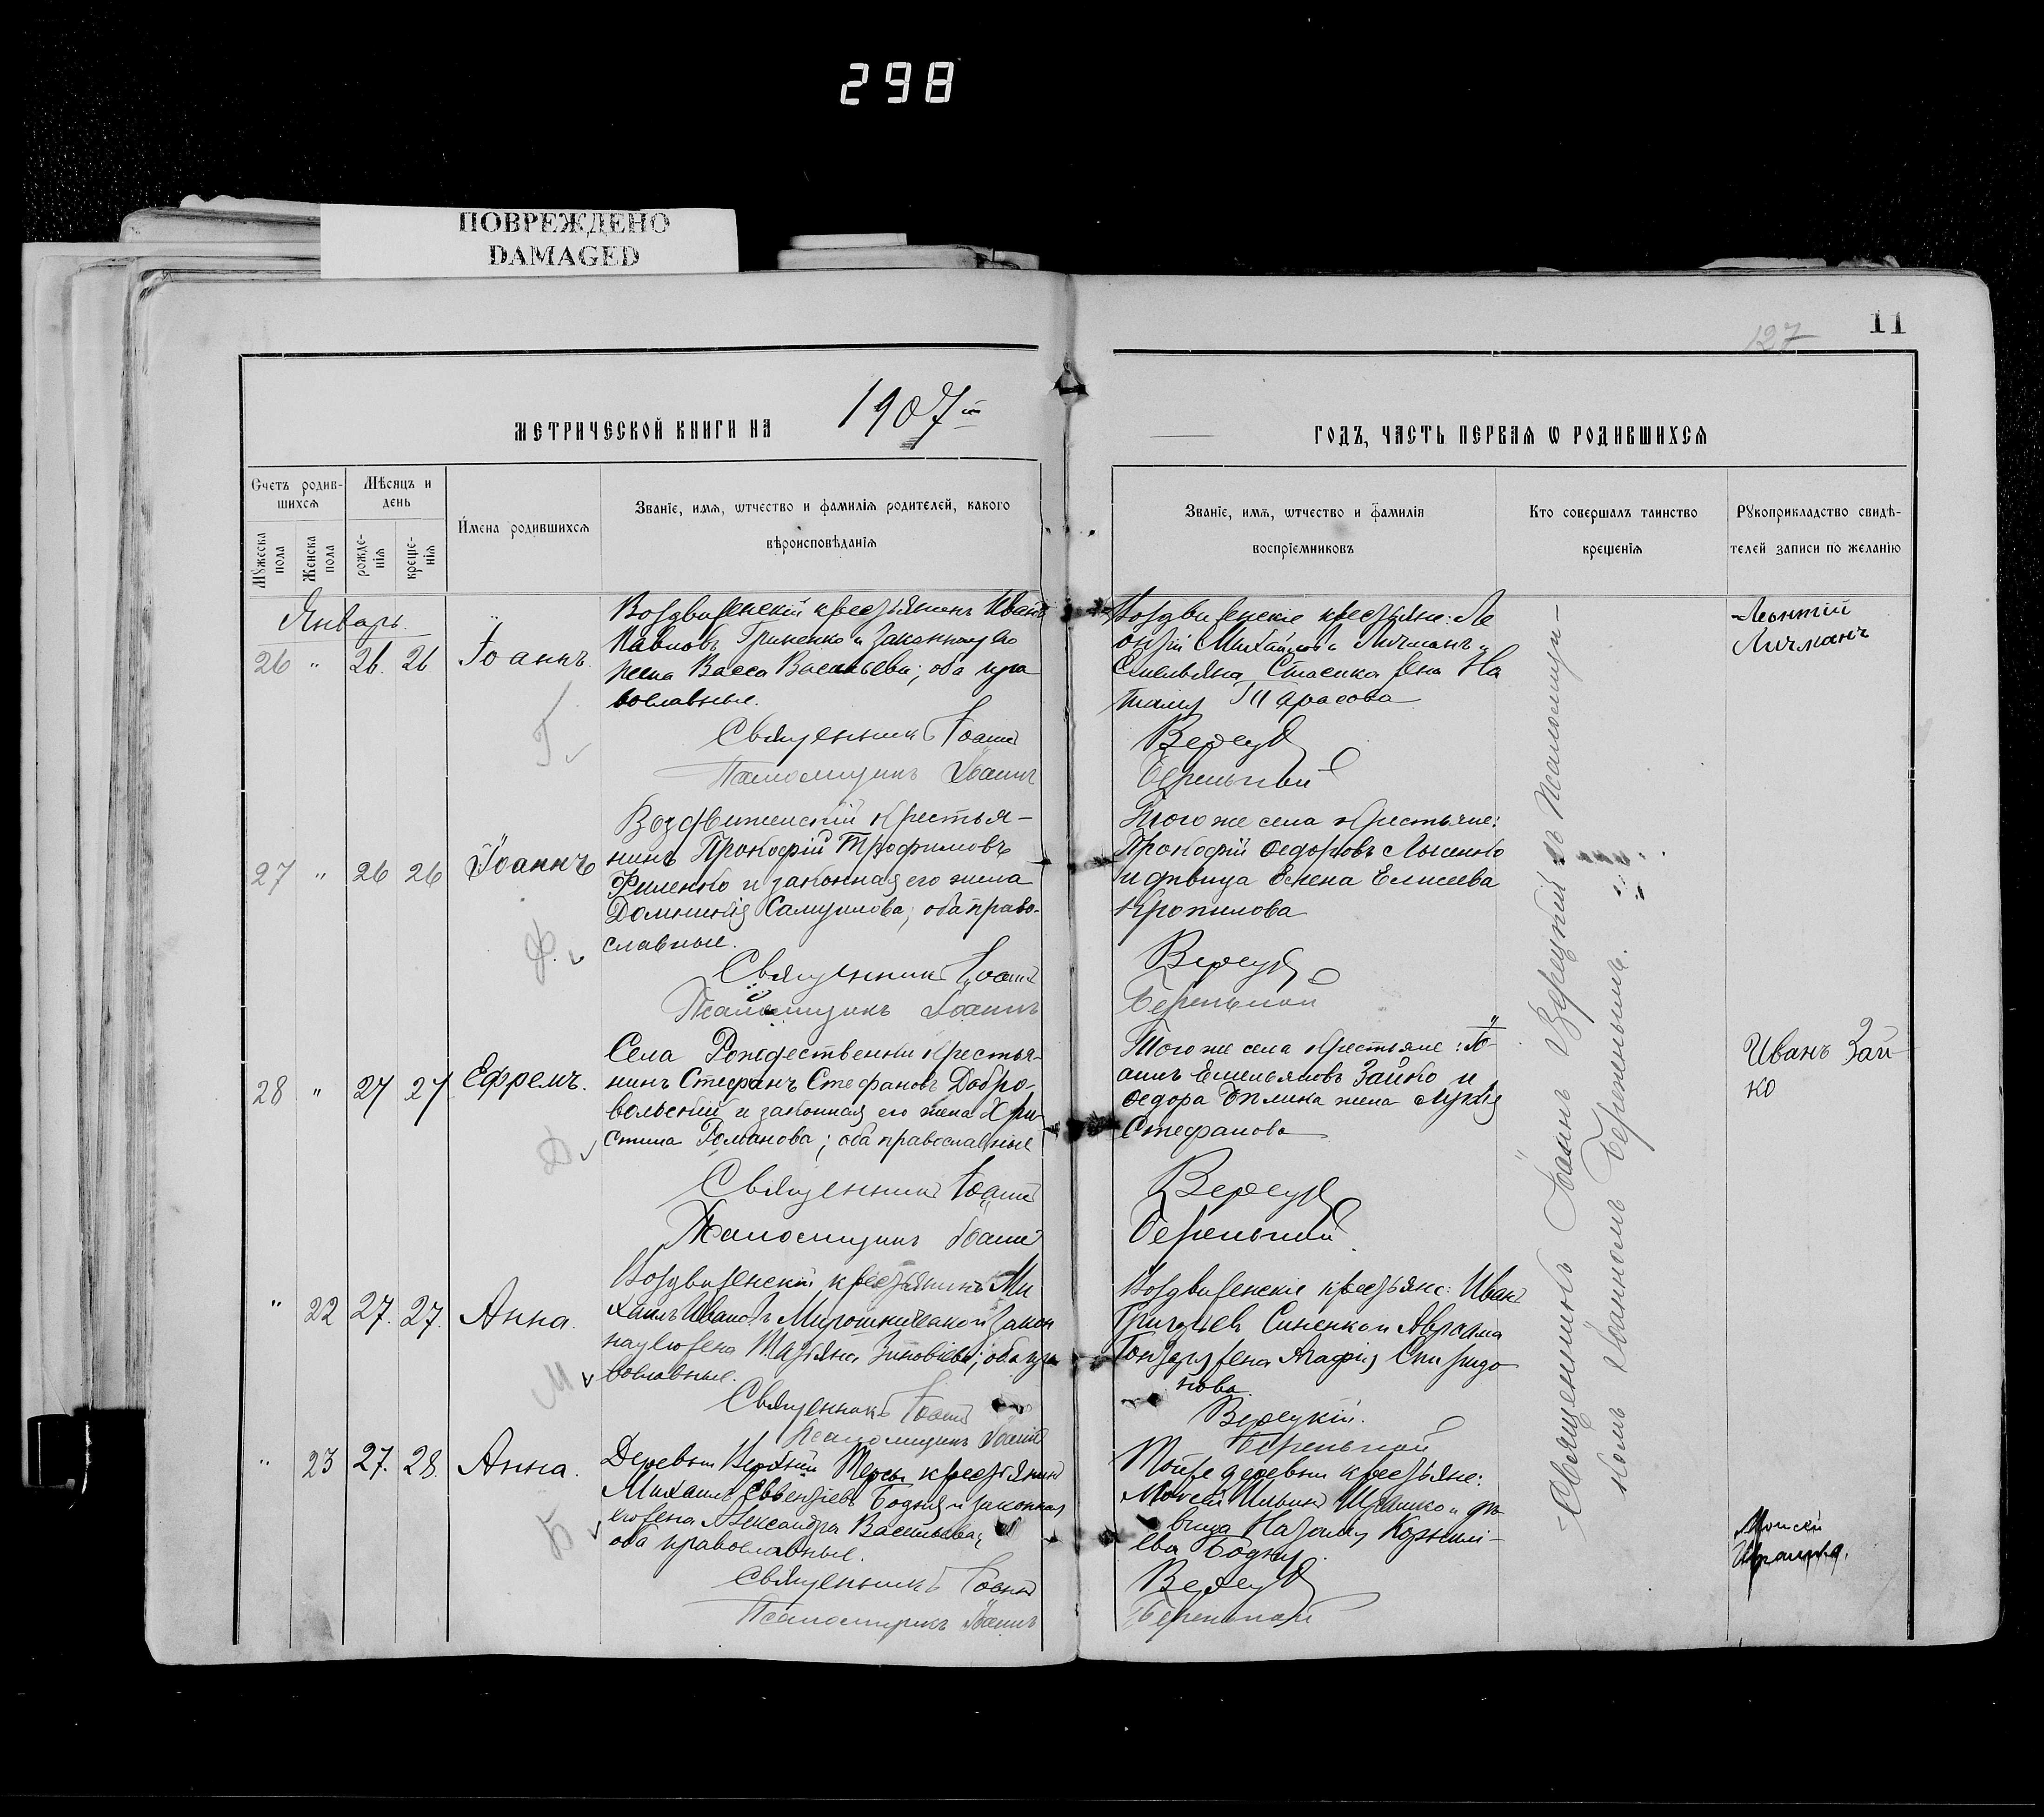 298
ПОВРЕЖДЕНО
DAMAGED
127
11
МЕТРИЧЕСКОЙ КНИГИ НА 1907й
ГОДЪ, ЧАСТЬ ПЕРВАѦ Ѡ РОДИВШИХСѦ
Счетъ родив-
шихсѧ
Мѣсяцъ и
день
Мꙋжеска
пола
Женска
пола
рожде-
нїѧ
креще-
нїѧ
Имена родившихсѧ
Званїе, имѧ, ѿтчество и фамилїѧ родителей, какого
вѣроисповѣданїѧ
Званїе, имѧ, ѿтчество и фамилїѧ
воспрїемниковъ
Кто совершалъ таинство
крещенїѧ
Рꙋкоприкладство свидѣ-
телей записи по желанїю
Январь.
26 " 26. 26 Іоаннъ.
Воздвиженскій крестьянинъ Иванъ
Павловъ Гриненко и законная его
жена Васса Васильева; оба пра
вославные.
Священникъ Іоаннъ
Псаломщикъ Іоаннъ
Воздвиженскіе крестьяне: Ле
онтій Михайловъ Личманъ и
Емельяна Стасенка жена На
талія Тарасова
Верецкій
Береньной
Леонтій
Личманъ
27 " 26 26 Іоаннъ
Воздвиженскій крестья-
нинъ Прокофій Трофимовъ
Филенко и законная его жена
Домникія Самуилова; оба право-
славные.
Священникъ Іоаннъ
Псаломщикъ Іоаннъ
Того же села крестьяне:
Прокофій Ѳедоровъ Лысенко
и дѣвица Елена Елисеева
Кропилова
Верецкій
Береньной
28 " 27 27 Ефремъ.
Села Рождественки крестья-
нинъ Стефанъ Стефановъ Добро-
вольскій и законная его жена Хри-
стина Романова; оба православные
Священникъ Іоаннъ
Псаломщикъ Іоаннъ
Того же села крестьяне: Іо-
аннъ Емельяновъ Зайко и
Ѳедора Бѣлика жена Лукія
Стефанова
Верецкій
Береньной
Иванъ Зай
ко
" 22 27. 27. Анна.
Воздвиженскій крестьянинъ Ми
хаилъ Ивановъ Мирошниченко и закон
ная его жена Татьяна Зиновіева; оба пра
вославные.
Священникъ Іоаннъ
Псаломщикъ Іоаннъ
Воздвиженскіе крестьяне: Иванъ
Григорьевъ Синенко и Авраама
жена Агафія Спиридо
нова.
Верецкій.
Береньной
" 23 27. 28. Анна.
Деревни Верхней Терсы крестьянинъ
Михаилъ Еввентіевъ Бодня и законная
его жена Александра Васильева;
оба православные.
Священникъ Іоаннъ
Псаломщикъ Іоаннъ
Той же деревни крестьяне:
Моисей Ильинъ Ивашко и дѣ
вица Наталія Корнилі-
ева Бодня.
Верецкій
Береньной
Моисей
Священникъ Іоаннъ Верецкій съ псаломщи-
комъ Іоанномъ Береньнымъ.